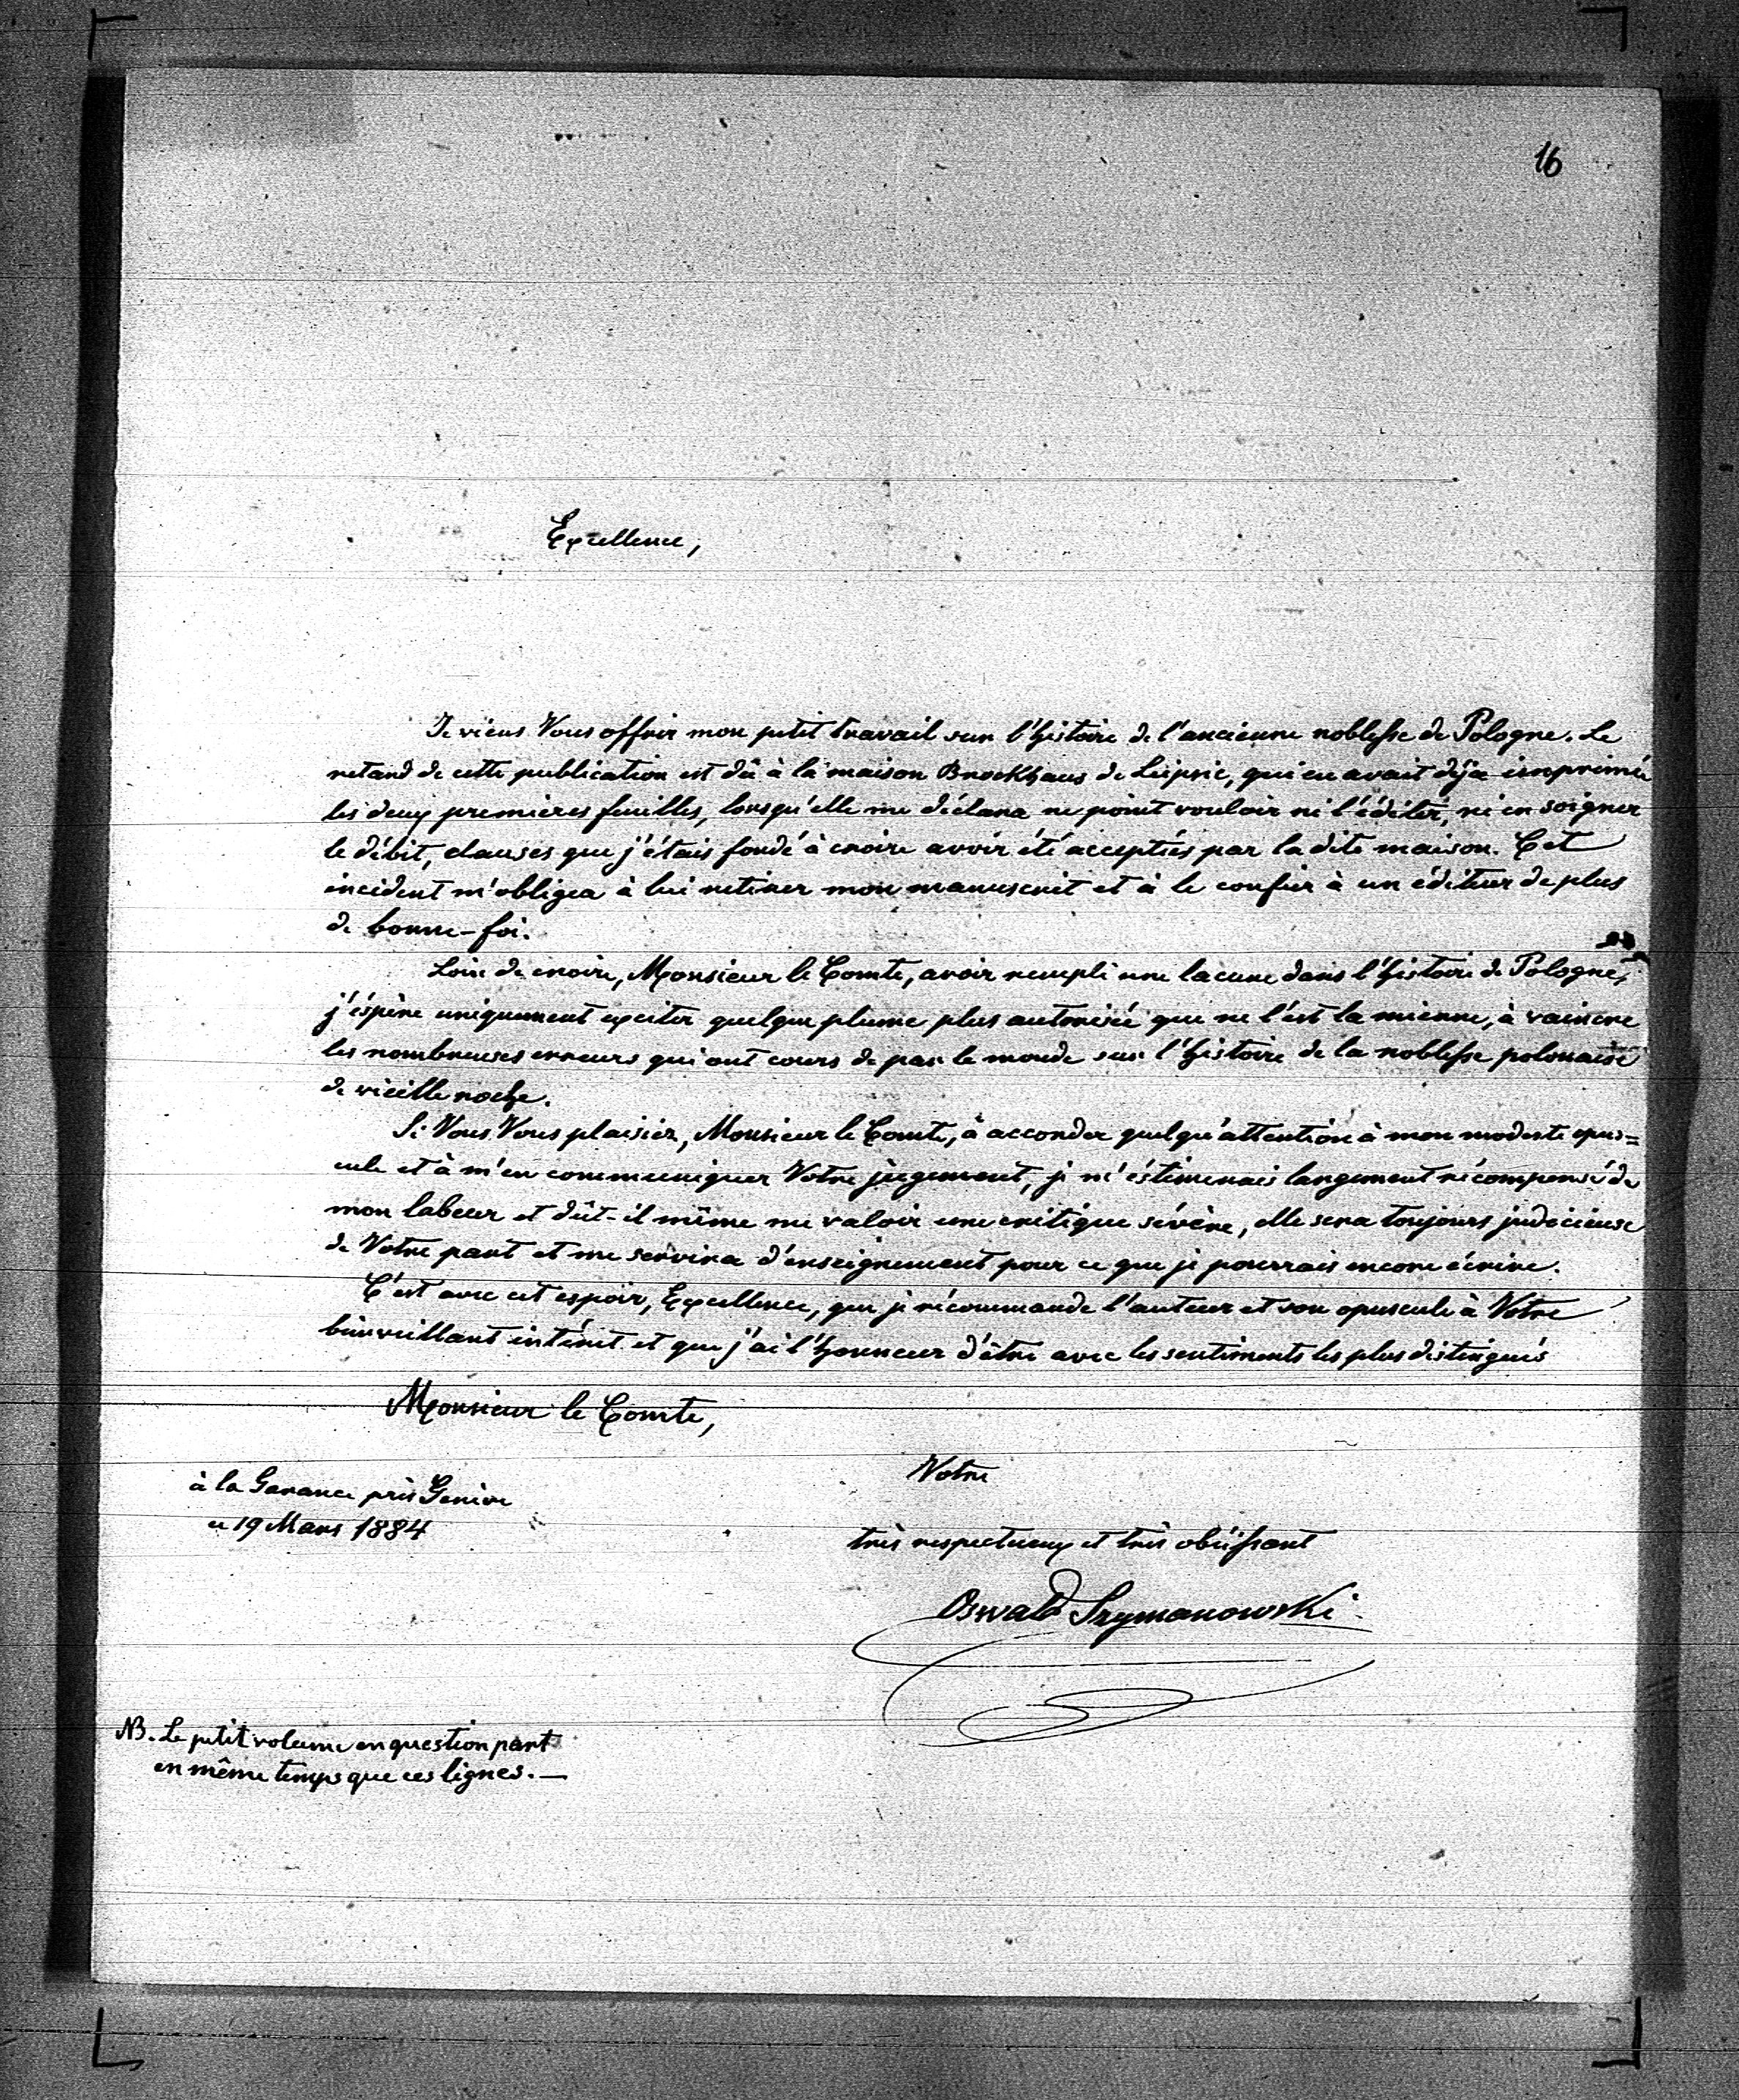 16
Excellence,
Je viens Vous offrir mon petit travail sur l'histoire de l'ancienne noblesse de Pologne. Le
retard de cette publication est dû à la maison Brockhaus de Leipsic, qui en avait déja imprimée
les deux premières feuilles, lorsqu'elle me déclara ne point vouloir ni l'éditer, ni en soigner
le débit, clauses que j'étais fondé à croire avoir été acceptées par la dite maison. Cet
incident m'obligea à lui retirer mon manuscrit et à le confier à un éditeur de plus
de bonne-foi.
Loin de croire, Monsieur le Comte, avoir rempli une lacune dans l'histoire de Pologne,
j'éspère uniquement exciter quelque plume plus autorisée que ne l'est la mienne, à vaincre
les nombreuses erreurs qui ont cours de par le monde sur l'histoire de la noblesse polonaise
de vieille roche.
Si Vous Vous plaisiez, Monsieur le Comte, à accorder quelqu'attention à mon modeste opus=
cule et à m'en communiquer Votre jugement, je m'éstimerais largement récompensé de
mon labeur et dût-il même me valoir une critique sévère, elle sera toujours judicieuse
de Votre part et me servira d'enseignement pour ce que je pourrais encore écrire.
C'est avec cet espoir, Excellence, que je récommande l'auteur et son opuscule à Votre
bienveillant intéret et que j'ai l'honneur d'être avec les sentiments les plus distingués
Monsieur le Comte,
Votre
à la Garance près Genève
ce 19 Mars 1884
très respectueux et très obéissant
Oswald Szymanowski
NB. Le petit volume en question part
en même temps que ces lignes. —